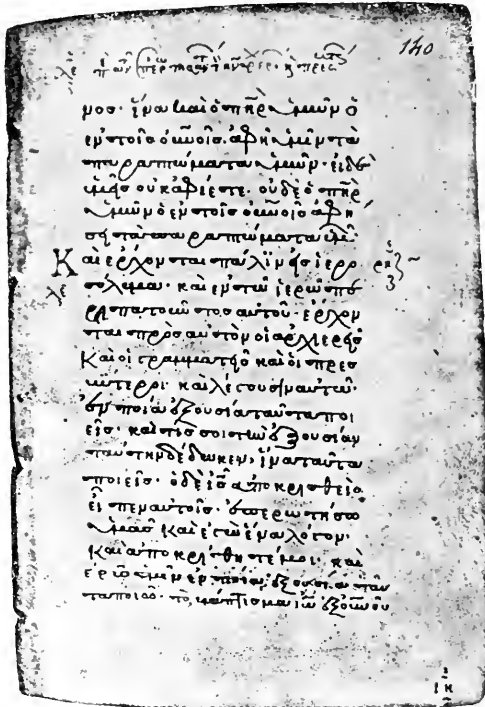 140
μος· ἵνα καὶ ὁ πηρ ὑμῶν ὁ
ἐν τοῖς οὐνοις· ἀφῆ ὑμῖν τὰ
παραπτώματα ὑμῶν· εἰ δὲ
ὑμεῖς οὐκ ἀφίεστε· οὐδὲ ὁ πηρ
ὑμῶν ὁ ἐν τοῖς οὐνοις ἀφή
σει τὰ παραπτώματα ὑμῶν
Καὶ ἔρχονται πάλιν εἰς ἱερο
λε
σόλυμα· καὶ ἐν τῶ ἱερῶ περι
πατοῦντος αὐτοῦ· ἔρχον
ται πρὸς αὐτὸν οἱ ἀρχιερεῖς
Καὶ οἱ γραμματεῖς καὶ οἱ πρεσ
βύτεροι· καὶ λέγουσιν αὐτῶ·
ἐν ποία ἐξουσία ταῦτα ποι
εῖς· καὶ τίς σοι τὴν ἐξουσίαν
ταύτην δέδωκεν, ἵνα ταῦτα
ποιεῖς· ὁ δὲ ις ἀποκριθεὶς
εἶπεν αὐτοῖς· ἐπερωτήσω
ὑμᾶς καὶ ἐγὼ ἕνα λόγον·
Καὶ ἀποκρίθητέ μοι· καὶ
ἐρῶ ὑμῖν ἐν ποία ἐξουσία ταῦ
τα ποιῶ· τὸ βάπτισμα ἰω ἐξ οὐνου